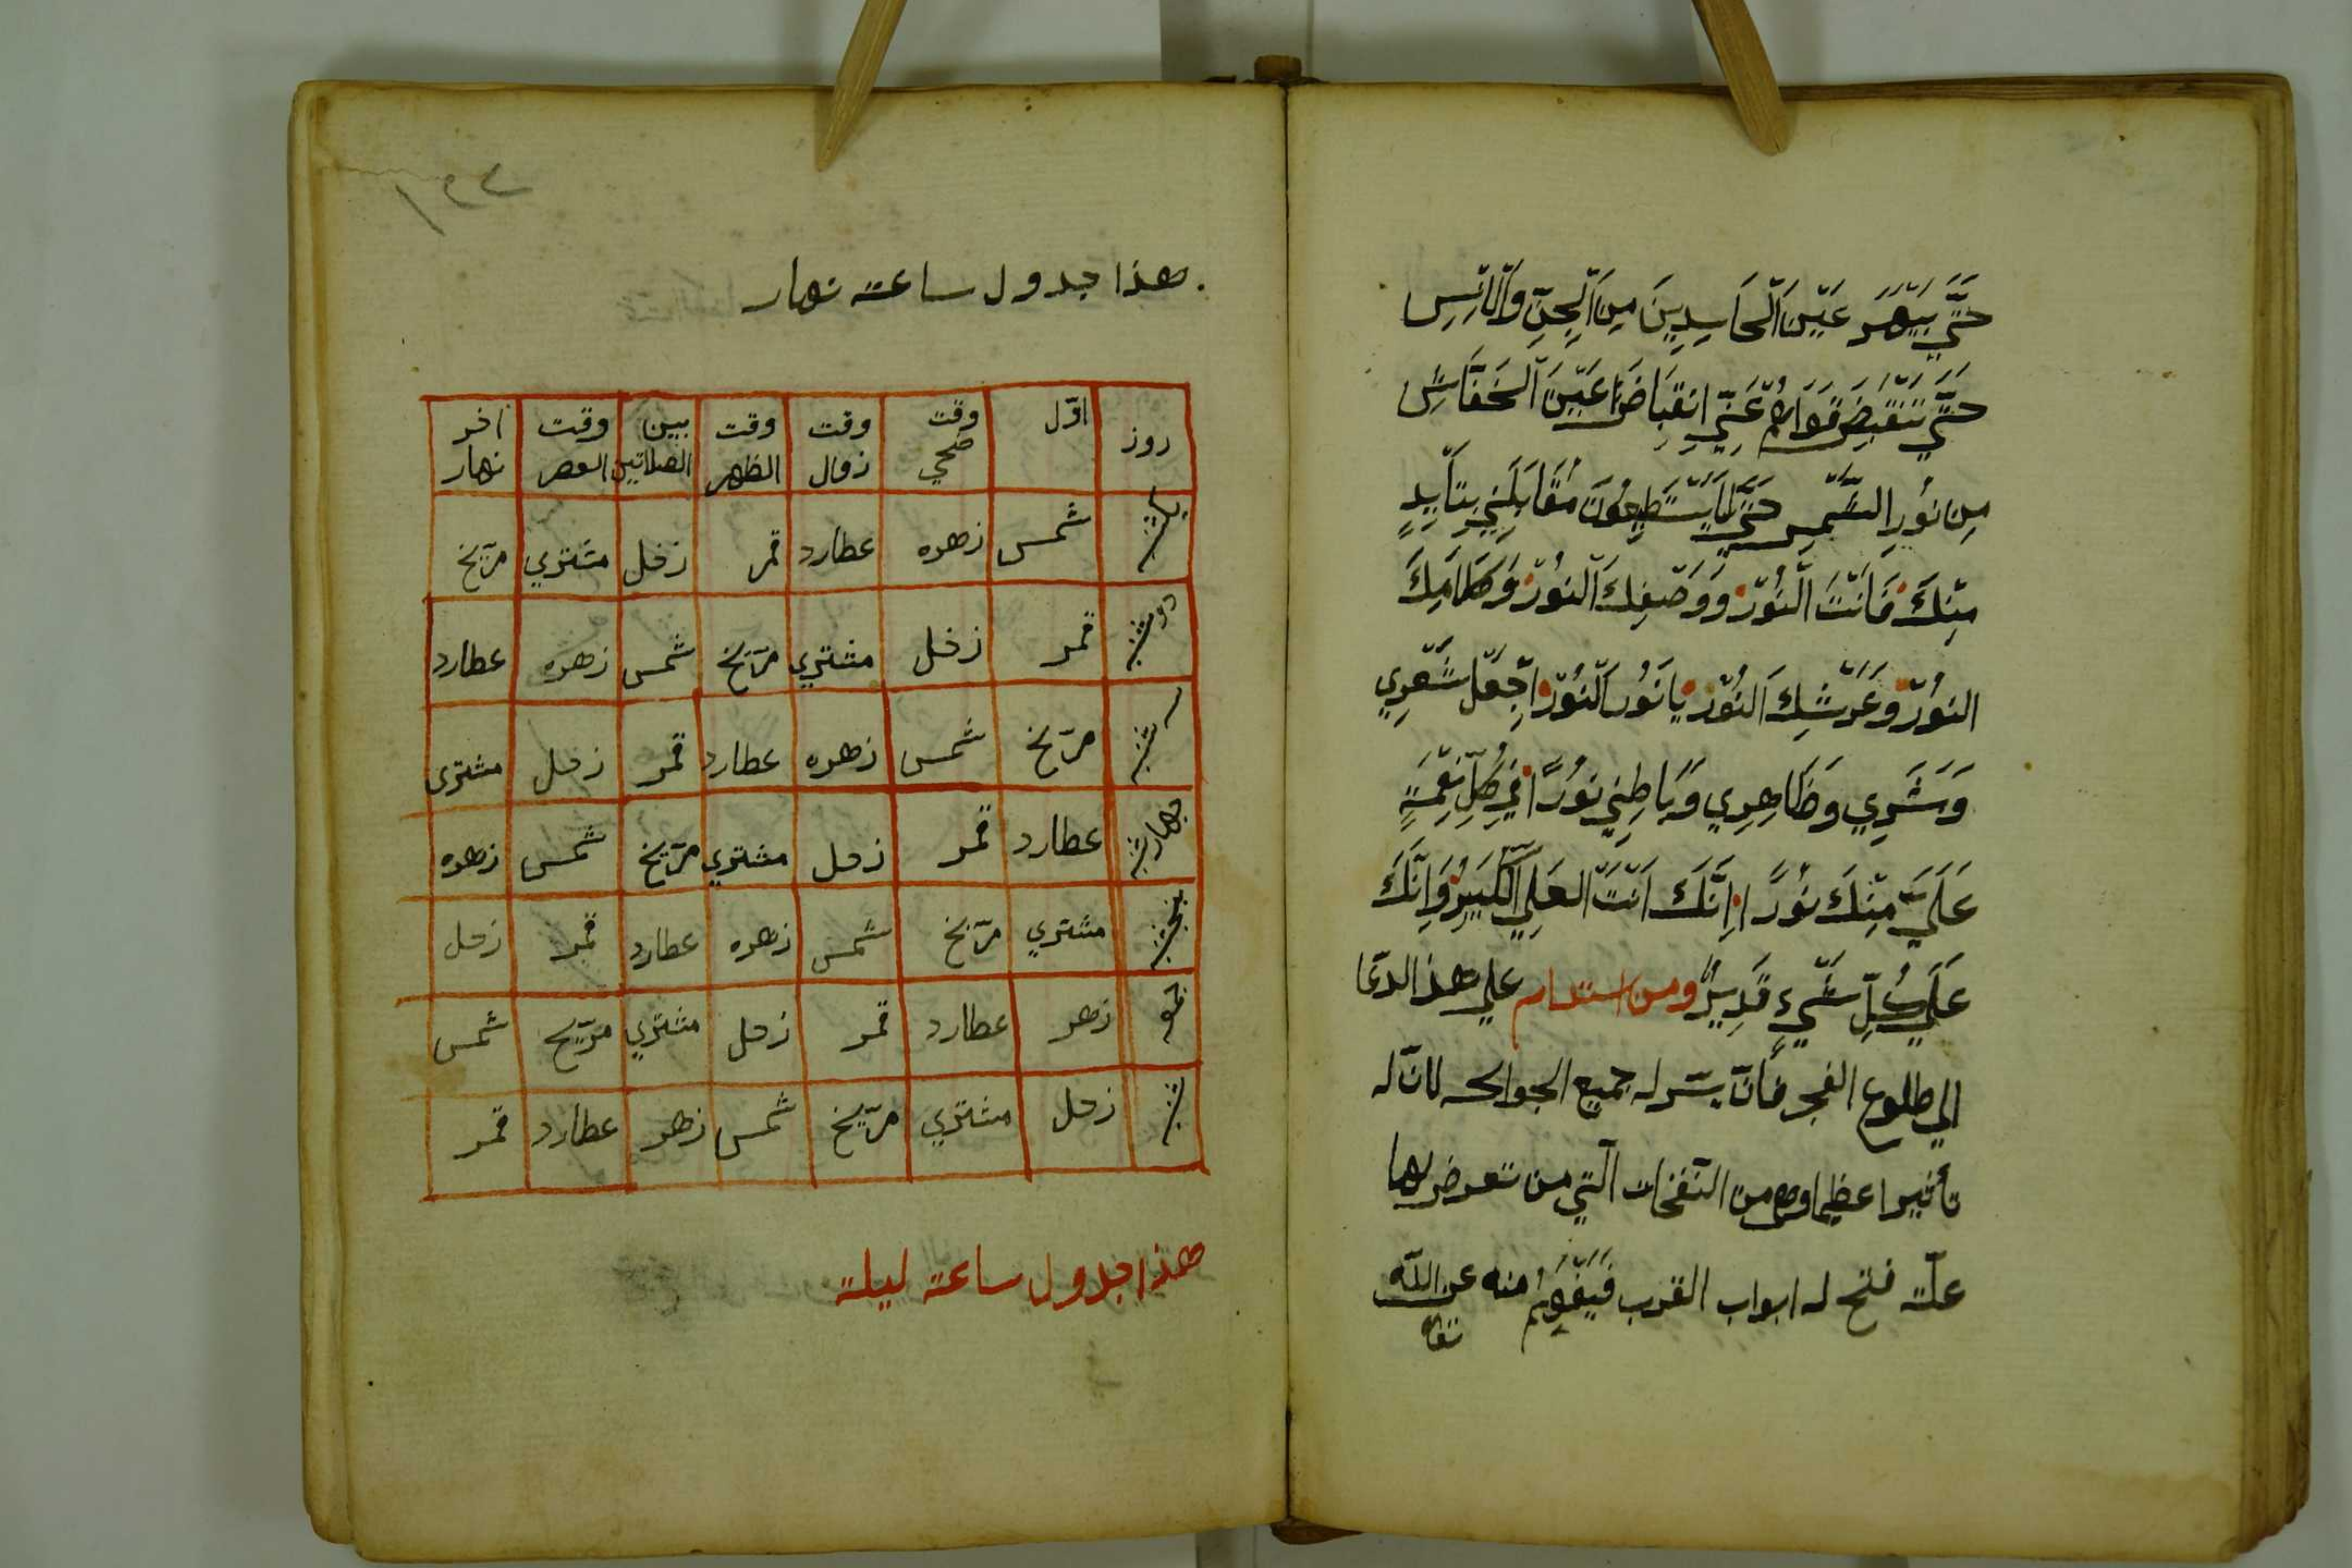 حَتَّي يَبْهَرَ عَيْنَ الْحَاسِدِينَ مِنَ الْجِنِّ وَالْاِنْسِ
حَتَّي تَنْقَبِضَ قُوَاهُمْ عَنِّي انقِبَاضَ عَيْنَ الْخَفَّاشِ
مِن نُورِ الشَّمْسِ حَتَّي لَايَسْتَطِيعُونَ مُقَابَلَتِي بِتَأْيِيدٍ
مِنْكَ فَاَنْتَ النُّوْرُ وَوَصْفِكَ النُوْرُ وَكَلَامِكَ
النُوْرُ وَعَرْشِكَ النُوْرُ يا نُوْرَ النُوْرِ اِجْعَلْ شَعْرِي
وَبَشَرِي وَظَاهِرِي وَبَاطِنِي نُوْرًا فِي كُلِّ نِعْمَةٍ
عَلَيَّ مِنْكَ نُوْرًا اِنَّكَ اَنْتَ العَلِيُّ الْكَبِيرُ وَاِنَّكَ
عَلَي كُلِّ شَيْءٍ قَدِيرٌ ومن استدام علي هذا الدعا
الي طلوع الفجر فانّ يسّر له جميع الجوالح لانّ له
تأثيرا عظيما وهي من النفخات الّتي من تعرض لها
علّة فتح له ابواب القرب فَيَفْهَمُ منه عن اللّه
تعا
١٢٣
هذا جدول ساعة نهار
روز اوّل وقت ضحي وقت زوال وقت الظهر بين الصلاتين وقت العصر اخر نهار
يكشنبه شمس زهره عطارد قمر زحل مشتري مرّيخ
دوشنبه قمر زحل مشتري مرّيخ شمس زهره عطارد
سه شنبه مرّيخ شمس زهره عطارد قمر زحل مشترى
چهارشنبه عطارد قمر زحل مشتري مرّيخ شمس زهره
پنجشنبه مشتري مرّيخ شمس زهره عطارد قمر زحل
جمعه زهر عطارد قمر زحل مشتري مرّيخ شمس
شنبه زحل مشتري مرّيخ شمس زهر عطارد قمر
هذا جدول ساعة ليلة